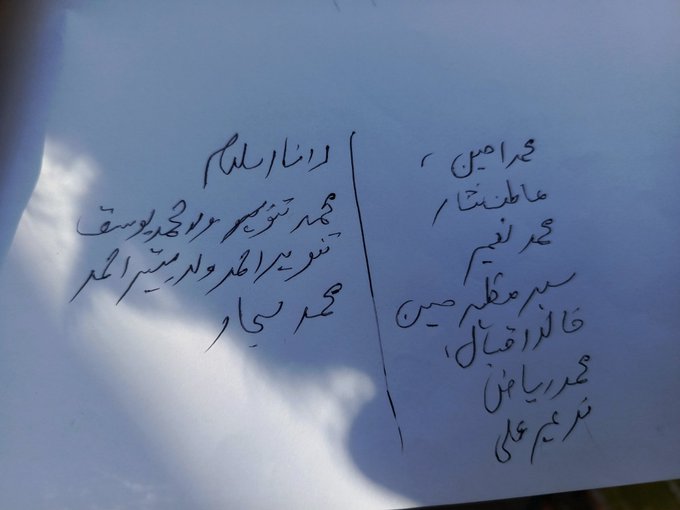 محمد امین،
عاطف نثار
محمد نعیم
سید مظہر حسین
خالد اقبال،
محمد ریاض
ندیم علی
رانا اسلام
محمد تنویر ولد محمد یوسف
تنویر احمد ولد بشیر احمد
محمد سجاد